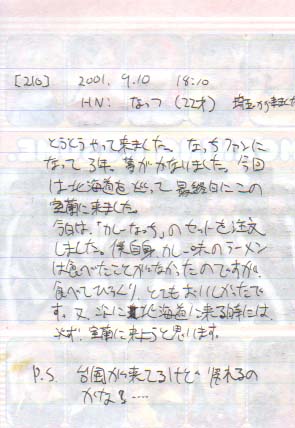 [210] 2001. 9.10 18:10
HN: なっつ (22才) 埼玉から来ました
とうとうやって来ました。なっちファンに
なって3年。夢がかないました。今回
は北海道を巡って最終日にこの
室蘭に来ました。
今日は、「カレーなっち」のセットを注文
しました。僕自身カレー味のラーメン
は食べたことがなかったのですが、
食べてびっくり、とてもおいしかったで
す。又、次に北海道に来る時には
必ず、室蘭に来ようと思います。
P.S. 台風が来てるけど帰れるの
かなぁ……